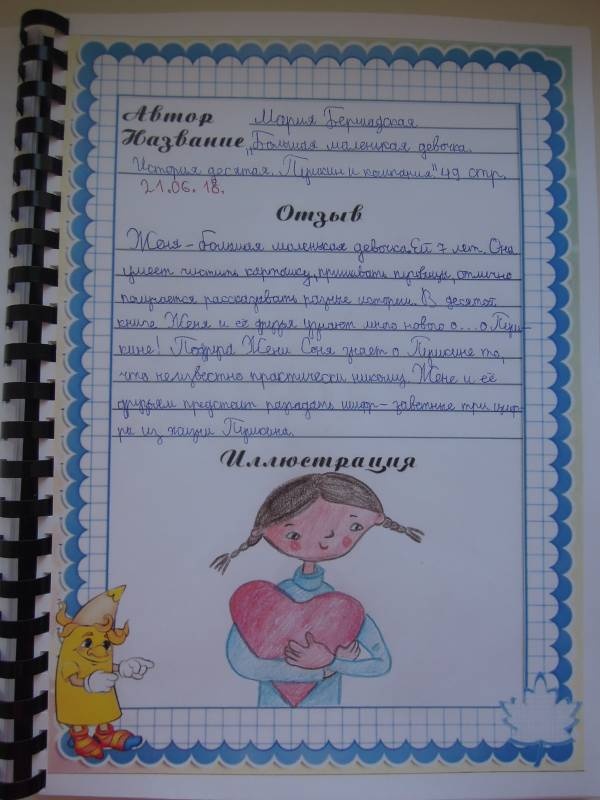 Автор Мария Бершадская
Название „Большая маленькая девочка.
История десятая. Пушкин и компания." 49 стр.
21.06.18.
Отзыв
Женя – большая маленькая девочка. Ей 7 лет. Она
умеет чистить картошку, пришивать пуговицы, отлично
получается рассказывать разные истории. В десятой
книге Женя и её друзья узнают много нового о... о Пуш-
кине! Подруга Жени Соня знает о Пушкине то,
что неизвестно практически никому. Жене и её
друзьям предстоит разгадать шифр – заветные три циф-
ры из жизни Пушкина.
Иллюстрация